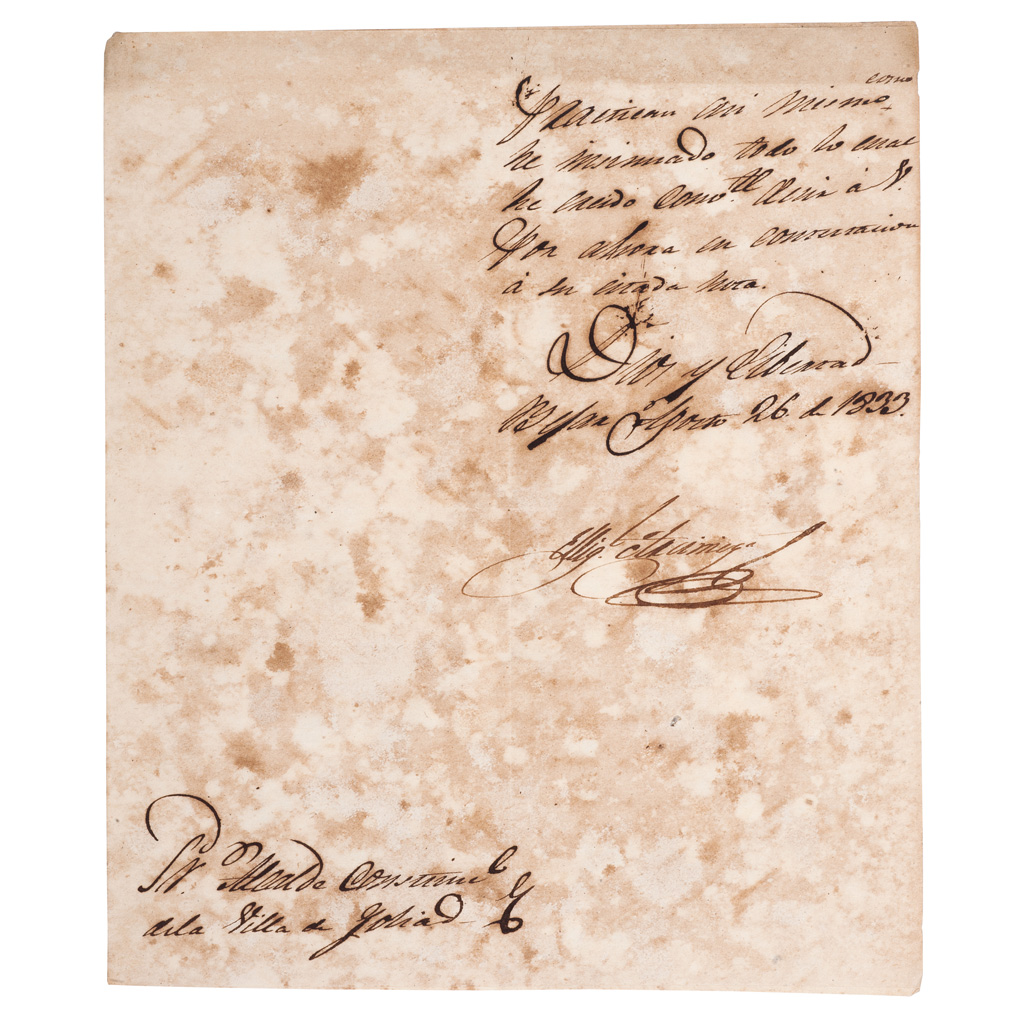 como
practican asi mismo
he insinuado todo lo cual
he creido conv.te decir à V.
por ahora en contestacion
à su citada nota.
Dios y Libertad
Bejar Agosto 26. de 1833.
Mig.l Arciniega
Sr. Alcalde Constitu.l
de la Villa de Goliad